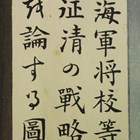 海軍将校等
征清の戦略
を論する圖